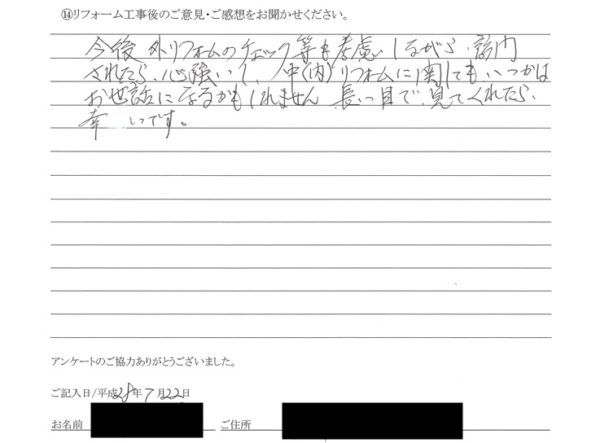 ⑭リフォーム工事後のご意見・ご感想をお聞かせください。
今後 外リフォームのチェック等も考慮しながら、訪問
されたら、心強いし、中(内)リフォームに関しても、いつかは
お世話になるかもしれません 長い目で、見てくれたら、
幸いです。
アンケートのご協力ありがとうございました。
ご記入日/平成28年7月22日
お名前 ご住所